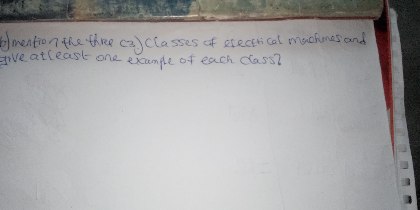 b) mention the three (3) classes of electrical machines and
give at least one example of each class?